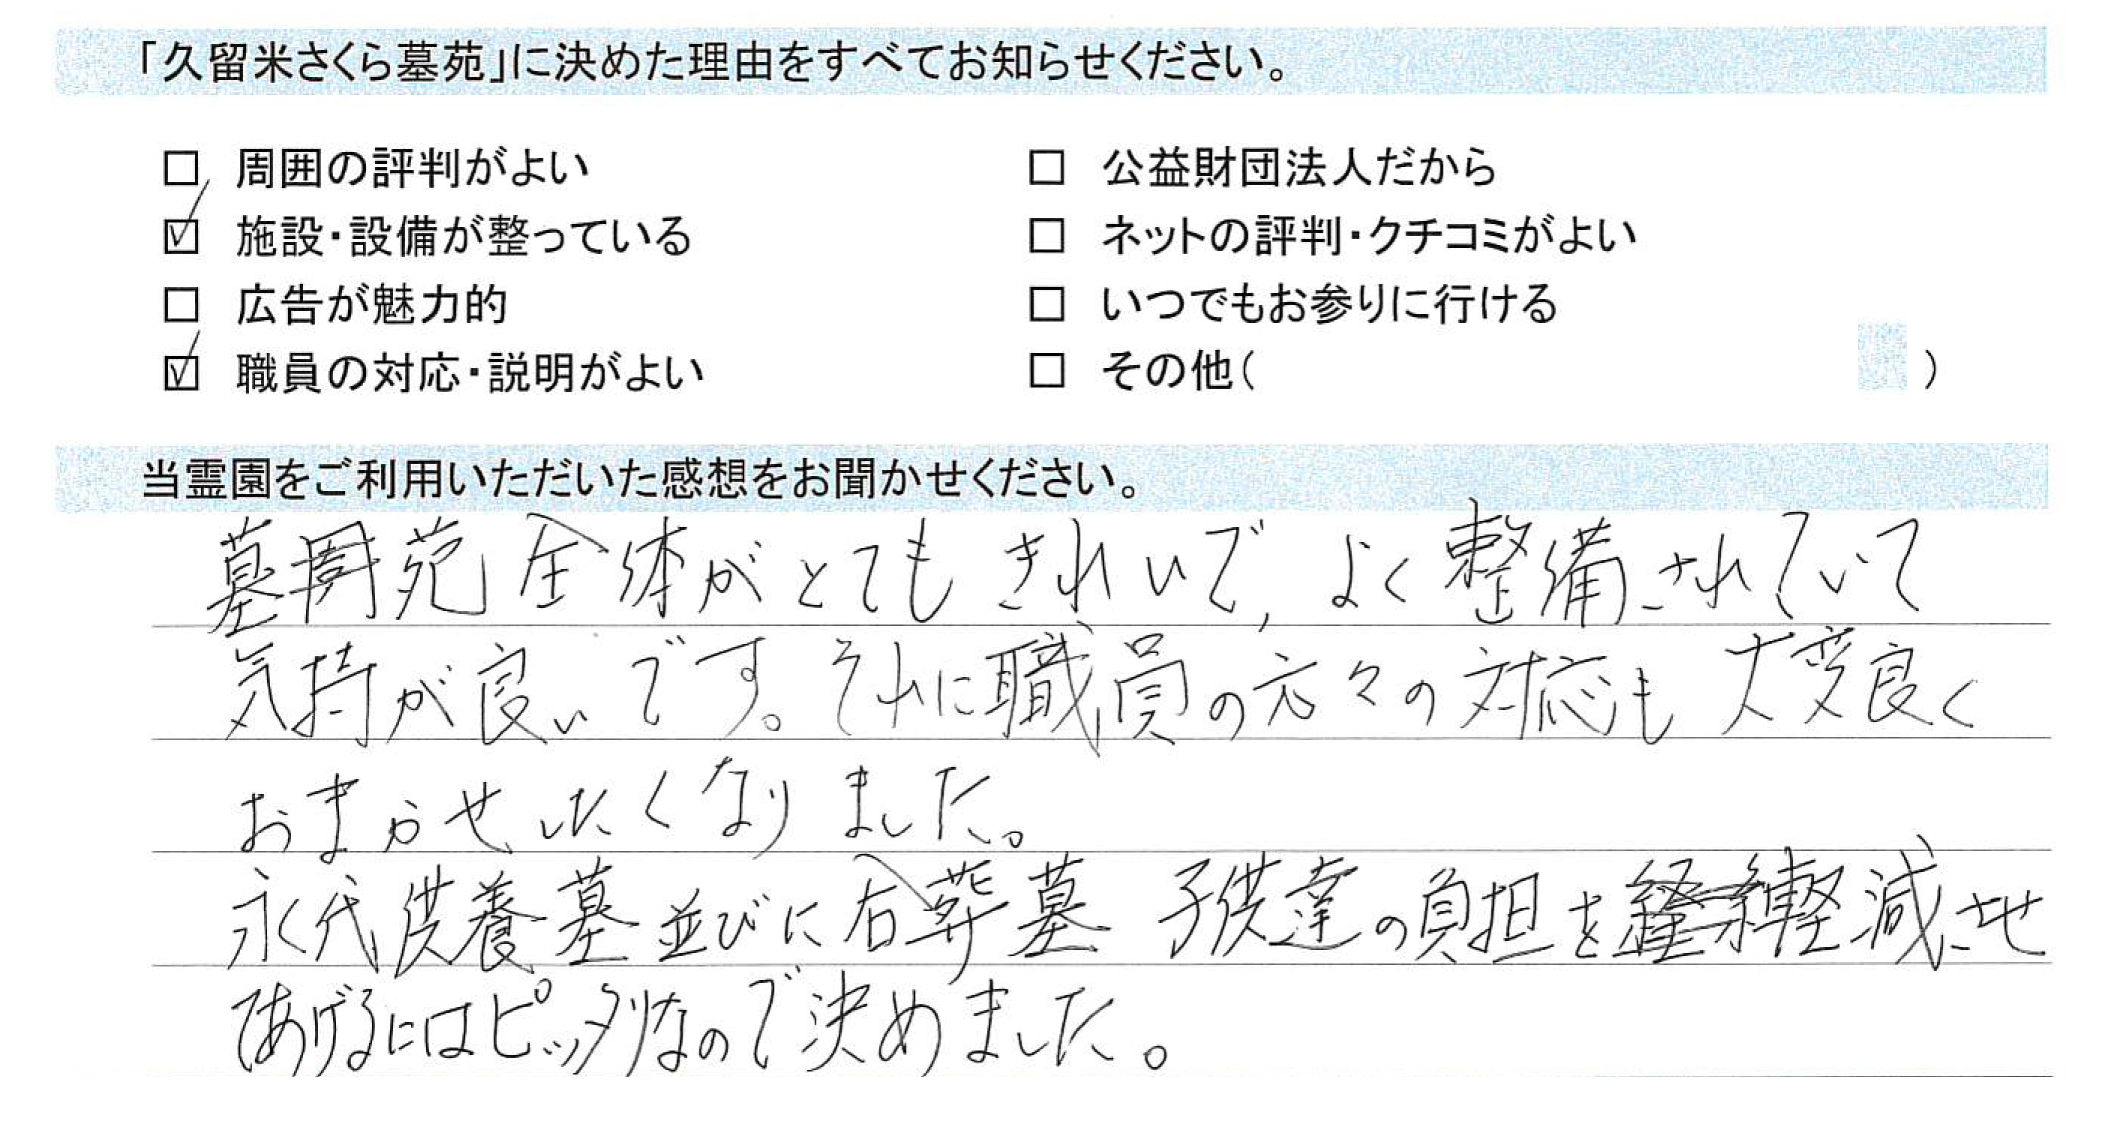 「久留米さくら墓苑」に決めた理由をすべてお知らせください。
□ 周囲の評判がよい
☑ 施設・設備が整っている
□ 広告が魅力的
☑ 職員の対応・説明がよい
□ 公益財団法人だから
□ ネットの評判・クチコミがよい
□ いつでもお参りに行ける
□ その他( )
当霊園をご利用いただいた感想をお聞かせください。
墓苑全体がとてもきれいで、よく整備されていて
気持が良いです。それに職員の方々の対応も大変良く
おまかせしたくなりました。
永代供養墓並びに合葬墓 子供達の負担を軽減させ
てあげるにはピッタリなので決めました。